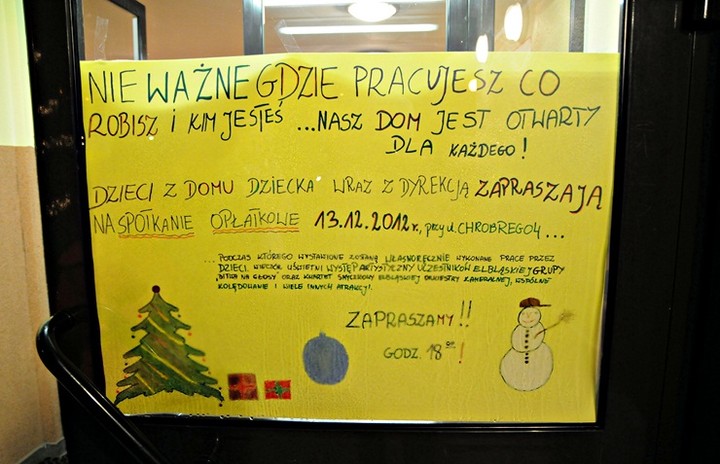 NIE WAŻNE GDZIE PRACUJESZ CO
ROBISZ I KIM JESTEŚ ...NASZ DOM JEST OTWARTY
DLA KAŻDEGO!
DZIECI Z DOMU DZIECKA WRAZ Z DYREKCJĄ ZAPRASZAJĄ
NA SPOTKANIE OPŁATKOWE 13.12.2012 r., przy ul. CHROBREGO 4 ...
...PODCZAS KTÓREGO WYSTAWIONE ZOSTANĄ WŁASNORĘCZNIE WYKONANE PRACE PRZEZ
DZIECI. WIECZÓR UŚWIETNI WYSTĘP ARTYSTYCZNY UCZESTNIKÓW ELBLĄSKIEJ GRUPY
BITWA NA GŁOSY ORAZ KWARTET SMYCZKOWY ELBLĄSKIEJ ORKIESTRY KAMERALNEJ, WSPÓLNE
KOLĘDOWANIE I WIELE INNYCH ATRAKCJI.
ZAPRASZAMY!!
GODZ. 18 00!